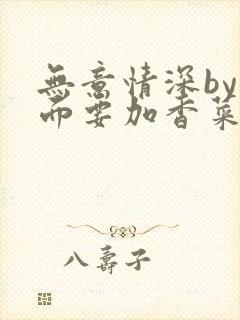 無意情深by
而要加香菜
八壽子